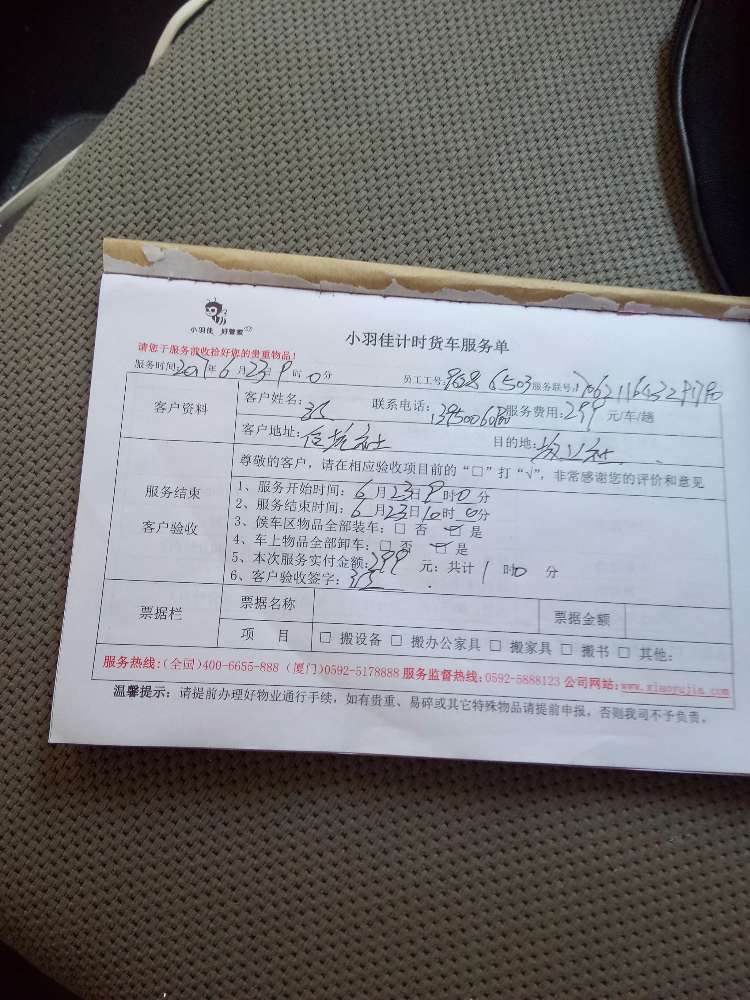 小羽佳 好管家
小羽佳计时货车服务单
请您于服务前收拾好您的贵重物品!
服务时间:2017年6月23日9时0分 员工工号: 服务联号:
客户资料 客户姓名: 联系电话: 服务费用:299元/车/趟
客户地址: 目的地:
尊敬的客户,请在相应验收项目前的“□”打“√”,非常感谢您的评价和意见
服务结束 客户验收
1、服务开始时间:6月23日9时0分
2、服务结束时间:6月23日10时0分
3、候车区物品全部装车:□ 否 ☑ 是
4、车上物品全部卸车:□ 否 ☑ 是
5、本次服务实付金额:299元;共计1时0分
6、客户验收签字:
票据栏 票据名称 票据金额
项 目 □ 搬设备 □ 搬办公家具 □ 搬家具 □ 搬书 □ 其他:
服务热线:(全国)400-6655-888 (厦门)0592-5178888 服务监督热线:0592-5888123 公司网站:www.xiaoyujia.com
温馨提示:请提前办理好物业通行手续,如有贵重、易碎或其它特殊物品请提前申报,否则我司不予负责。